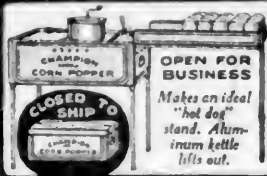 CHAMPION
CORN POPPER
CLOSED TO
SHIP
CHAMPION
CORN POPPER
OPEN FOR
BUSINESS
Makes an ideal
"hot dog"
stand. Alum-
inum kettle
lifts out.